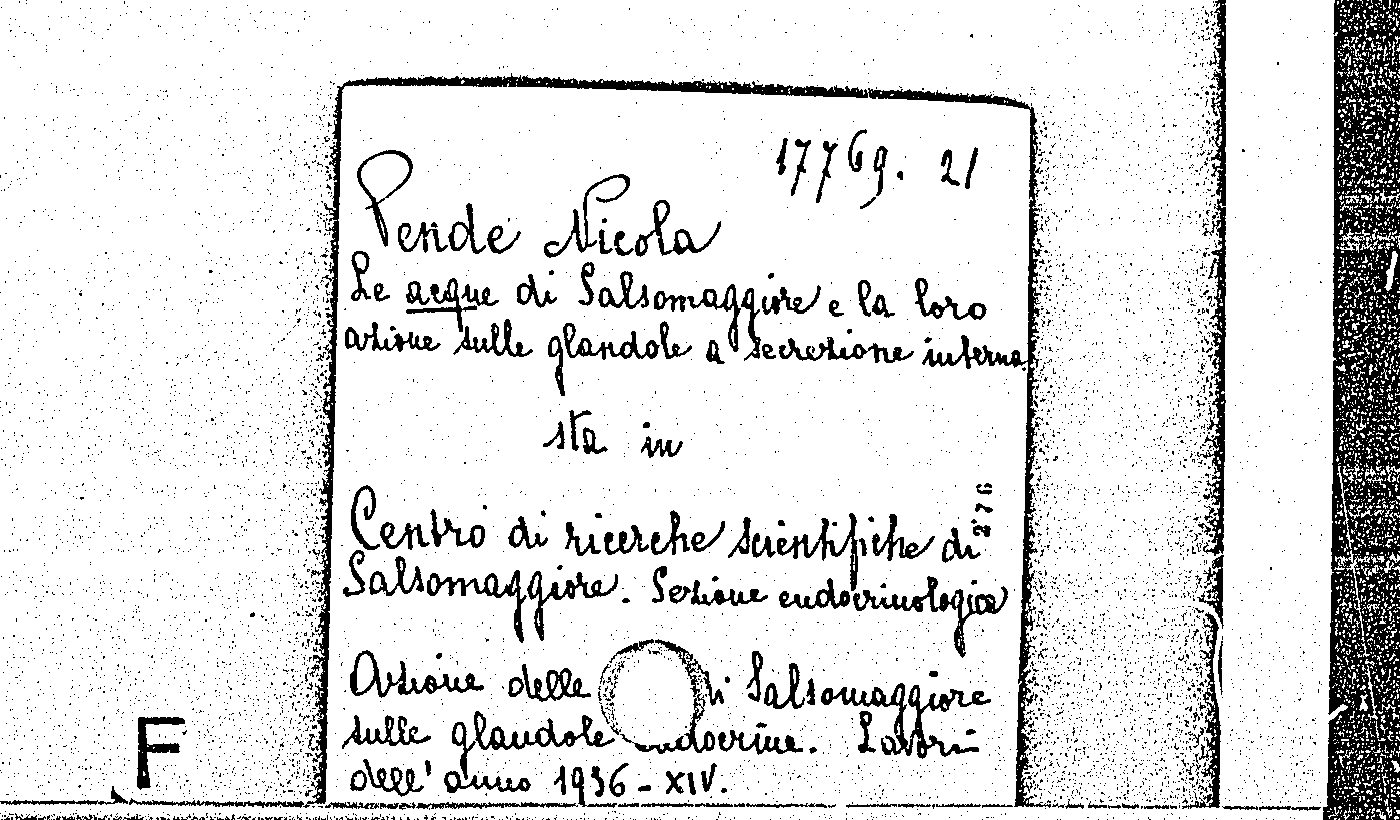 17769. 21
Pende Nicola
Le acque di Salsomaggiore e la loro
azione sulle glandole a secrezione interna
sta in
276
Centro di ricerche scientifiche di
Salsomaggiore. Sezione endocrinologica
Azione delle di Salsomaggiore
sulle glandole endocrine. Lavori
dell'anno 1936 - XIV.
F